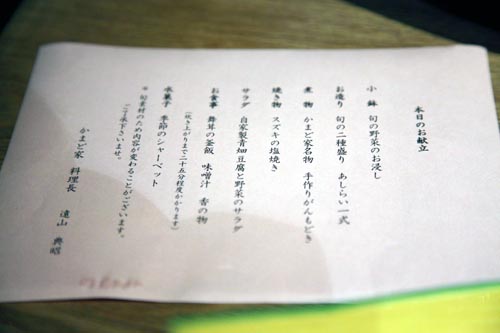 本日のお献立
小鉢 旬の野菜のお浸し
お造り 旬の二種盛り あしらい一式
煮物 かまど家名物 手作りがんもどき
焼き物 スズキの塩焼き
サラダ 自家製青畑豆腐と野菜のサラダ
お食事 舞茸の釜飯 味噌汁 香の物
(炊き上がりまで二十五分程度かかります)
水菓子 季節のシャーベット
※ 旬素材のため内容が変わることがございます。
ご了承下さいませ。
かまど家 料理長 遠山 典昭